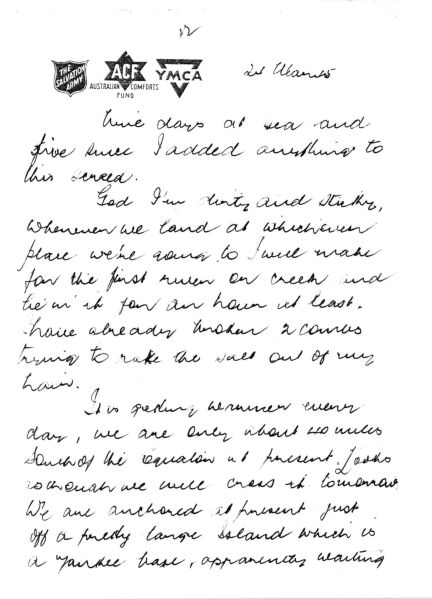 12
THE SALVATION ARMY
ACF
AUSTRALIAN COMFORTS FUND
YMCA
Nine days at sea and
five since I added anything to
this screed.
God I'm dirty and sticky,
whenever we land at whichever
place we're going to I will make
for the first river or creek and
lie in it for an hour at least.
have already broken 2 combs
trying to rake the salt out of my
hair.
It is getting warmer every
day, we are only about 40 miles
South of the equator at present. Looks
as though we will cross it tomorrow.
We are anchored at present just
off a pretty large Island which is
a Yankee base, apparently waiting